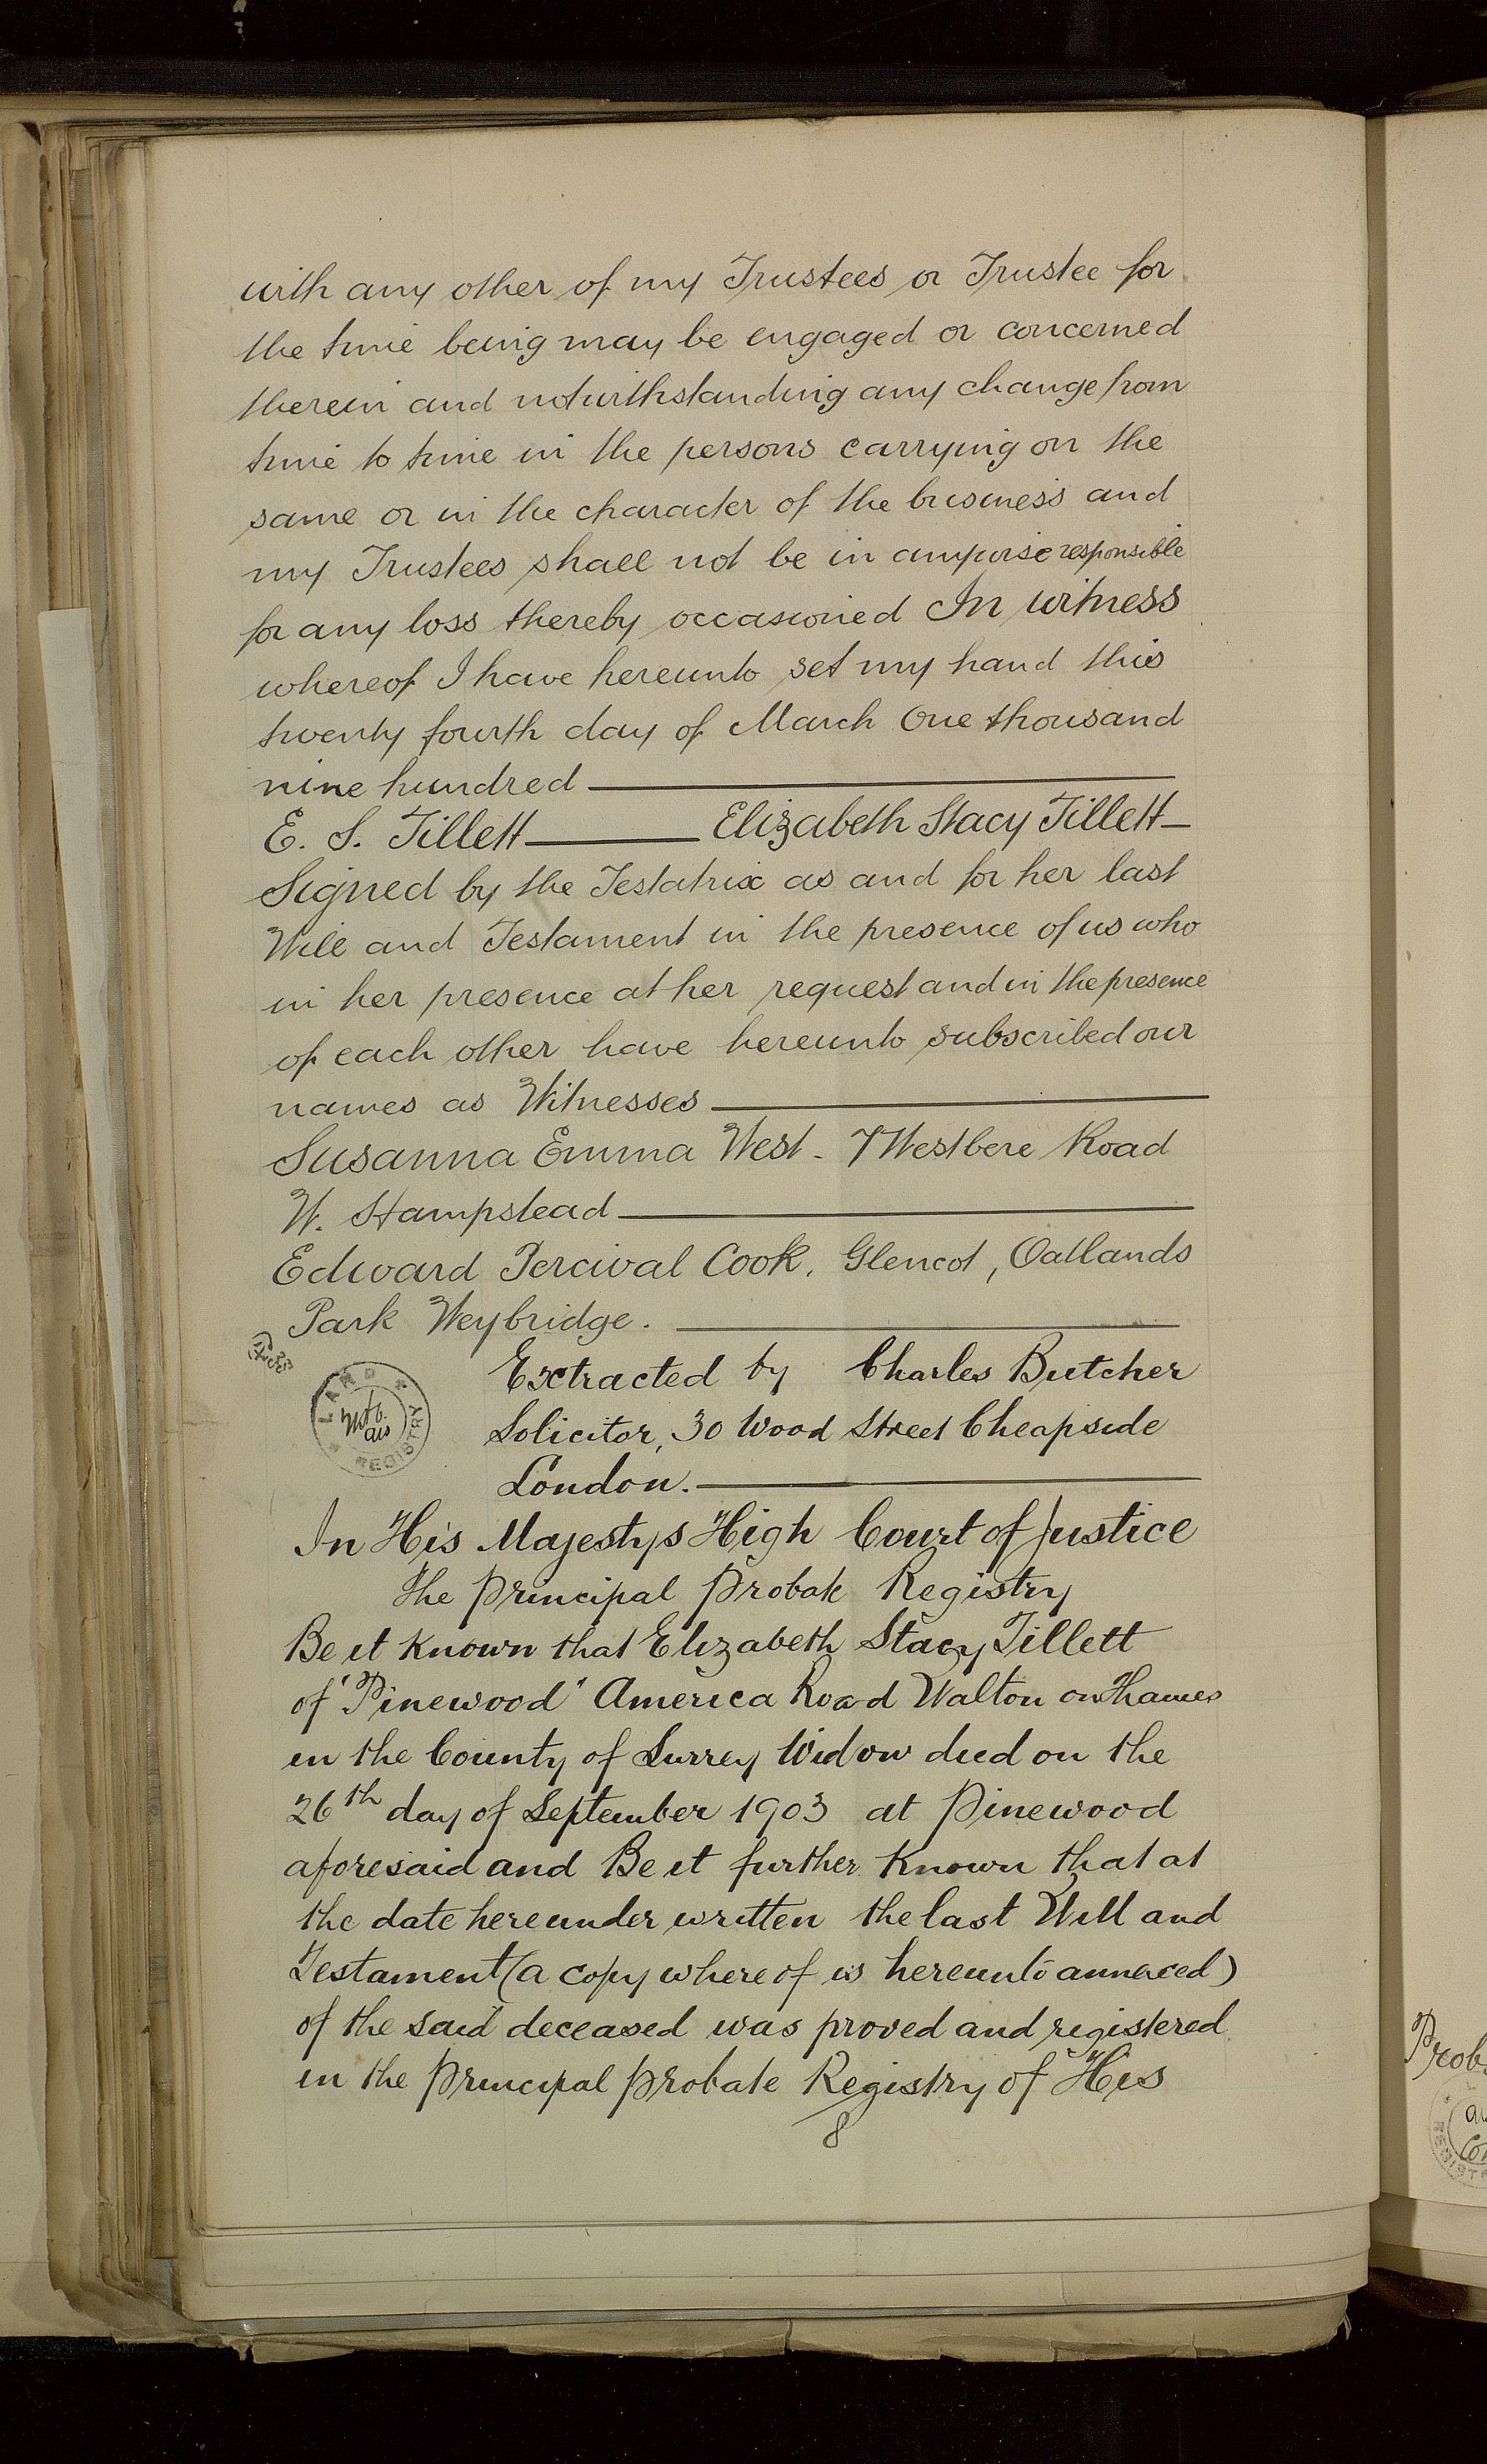 with any other of my Trustees or Trustee for
the time being may be engaged or concerned
therein and notwithstanding any change from
time to time in the persons carrying on the
same or in the character of the business and
my Trustees shall not be in anywise responsible
for any loss thereby occasioned In witness
whereof I have hereunto set my hand this
twenty fourth day of March One thousand
nine hundred
E. S. Tillett Elizabeth Stacy Tillett
Signed by the Testatrix as and for her last
Will and Testament in the presence of us who
in her presence at her request and in the presence
of each other have hereunto subscribed our
names as Witnesses
Susanna Emma West - 7 Westbere Road
W. Hampstead
Edward Percival Cook, Glencot, Oatlands
Park Weybridge.
Extracted by Charles Butcher
LAND REGISTRY
Solicitor, 30 Wood Street Cheapside
London.
In His Majestys High Court of Justice
The Principal Probate Registry
Be it Known that Elizabeth Stacy Tillett
of "Pinewood" America Road Walton on Thames
in the County of Surrey Widow died on the
26th day of September 1903 at Pinewood
aforesaid and Be it further Known that at
the date hereunder written the last Will and
Testament (a copy whereof is hereunto annexed)
of the said deceased was proved and registered
in the Principal Probate Registry of His
8
Prob
REGIST